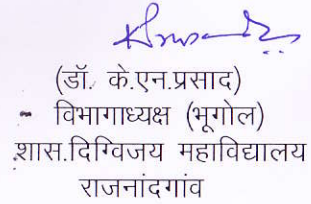 (डॉ. के.एन.प्रसाद)
विभागाध्यक्ष (भूगोल)
शास.दिग्विजय महाविद्यालय
राजनांदगांव